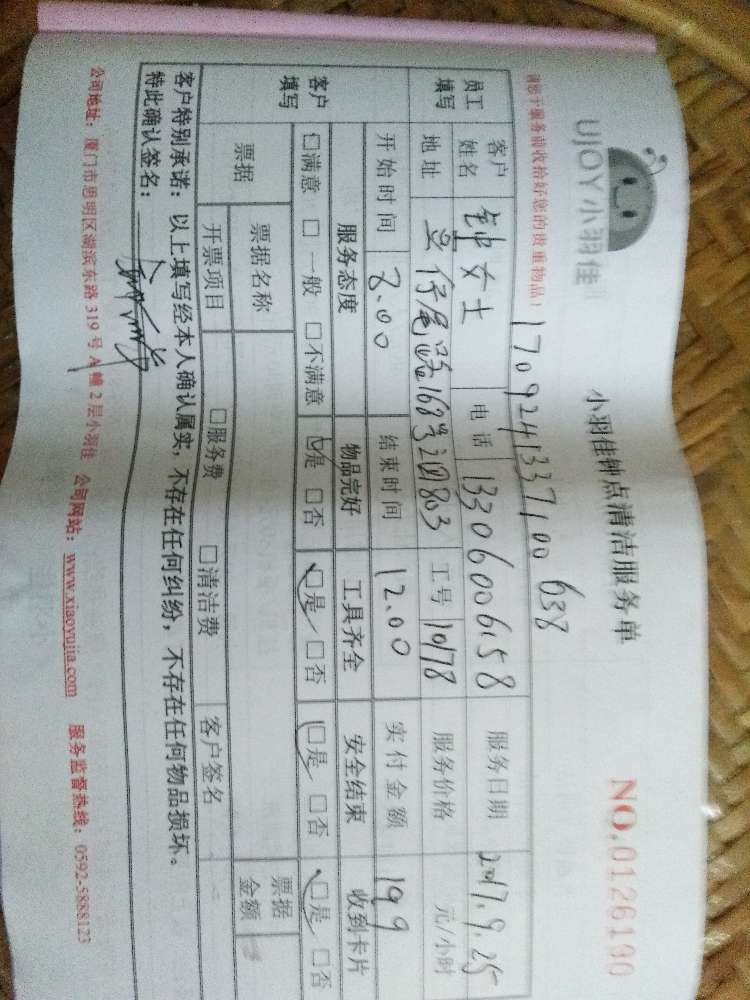 UJOY小羽佳
小羽佳钟点清洁服务单
NO.0126190
请您于服务前收拾好您的贵重物品!
1709241337100638
员工填写
客户姓名 钟女士 电话 13306006158 服务日期 2017.9.25
地址 仔尾路168号 803 工号 1078 服务价格 元/小时
开始时间 8.00 结束时间 12.00 实付金额 199
客户填写
服务态度 物品完好 工具齐全 安全结束 收到卡片
□满意 □一般 □不满意 □是 □否 □是 □否 □是 □否 □是 □否
票据 票据名称 票据金额
开票项目 □服务费 □清洁费 客户签名
客户特别承诺：以上填写经本人确认属实，不存在任何纠纷，不存在任何物品损坏。
特此确认签名：
公司地址：厦门市思明区湖滨东路319号A幢2层小羽佳 公司网站：www.xiaoyujia.com 服务监督热线：0592-5888123